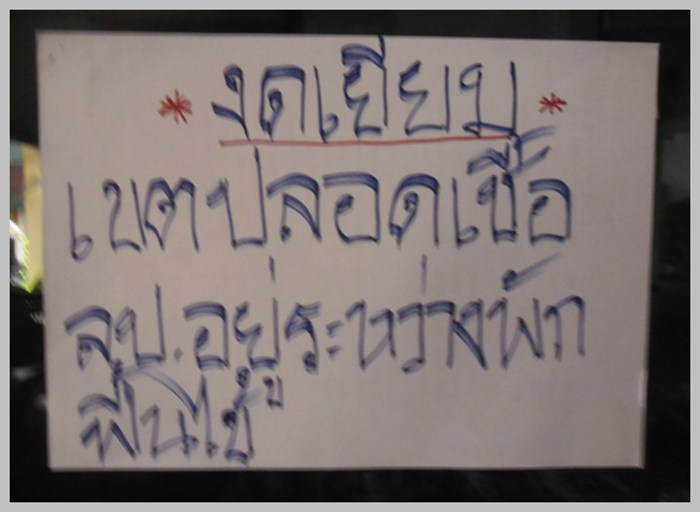 * งดเยี่ยม *
เขตปลอดเชื้อ
ลป.อยู่ระหว่างพัก
ฟื้นไข้